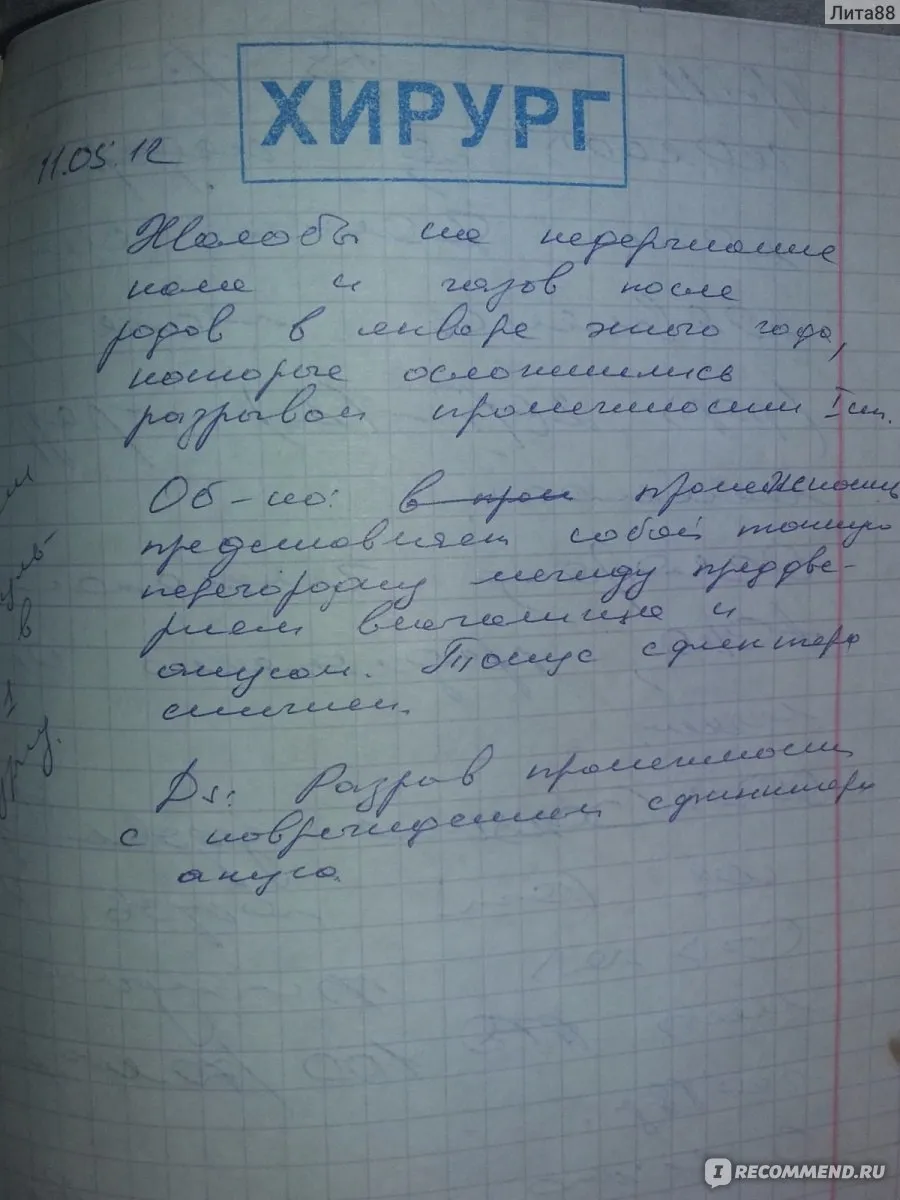 Лита88
ХИРУРГ
11.05.12
Жалобы на недержание
кала и газов после
родов в январе этого года,
которые осложнились
разрывом промежности I ст.
Об-но: в пром промежность
представляет собой тонкую
перегородку между преддве-
рием влагалища и
анусом. Тонус сфинктера
снижен.
Ds: Разрыв промежности
с повреждением сфинктера
ануса.
I RECOMMEND.RU